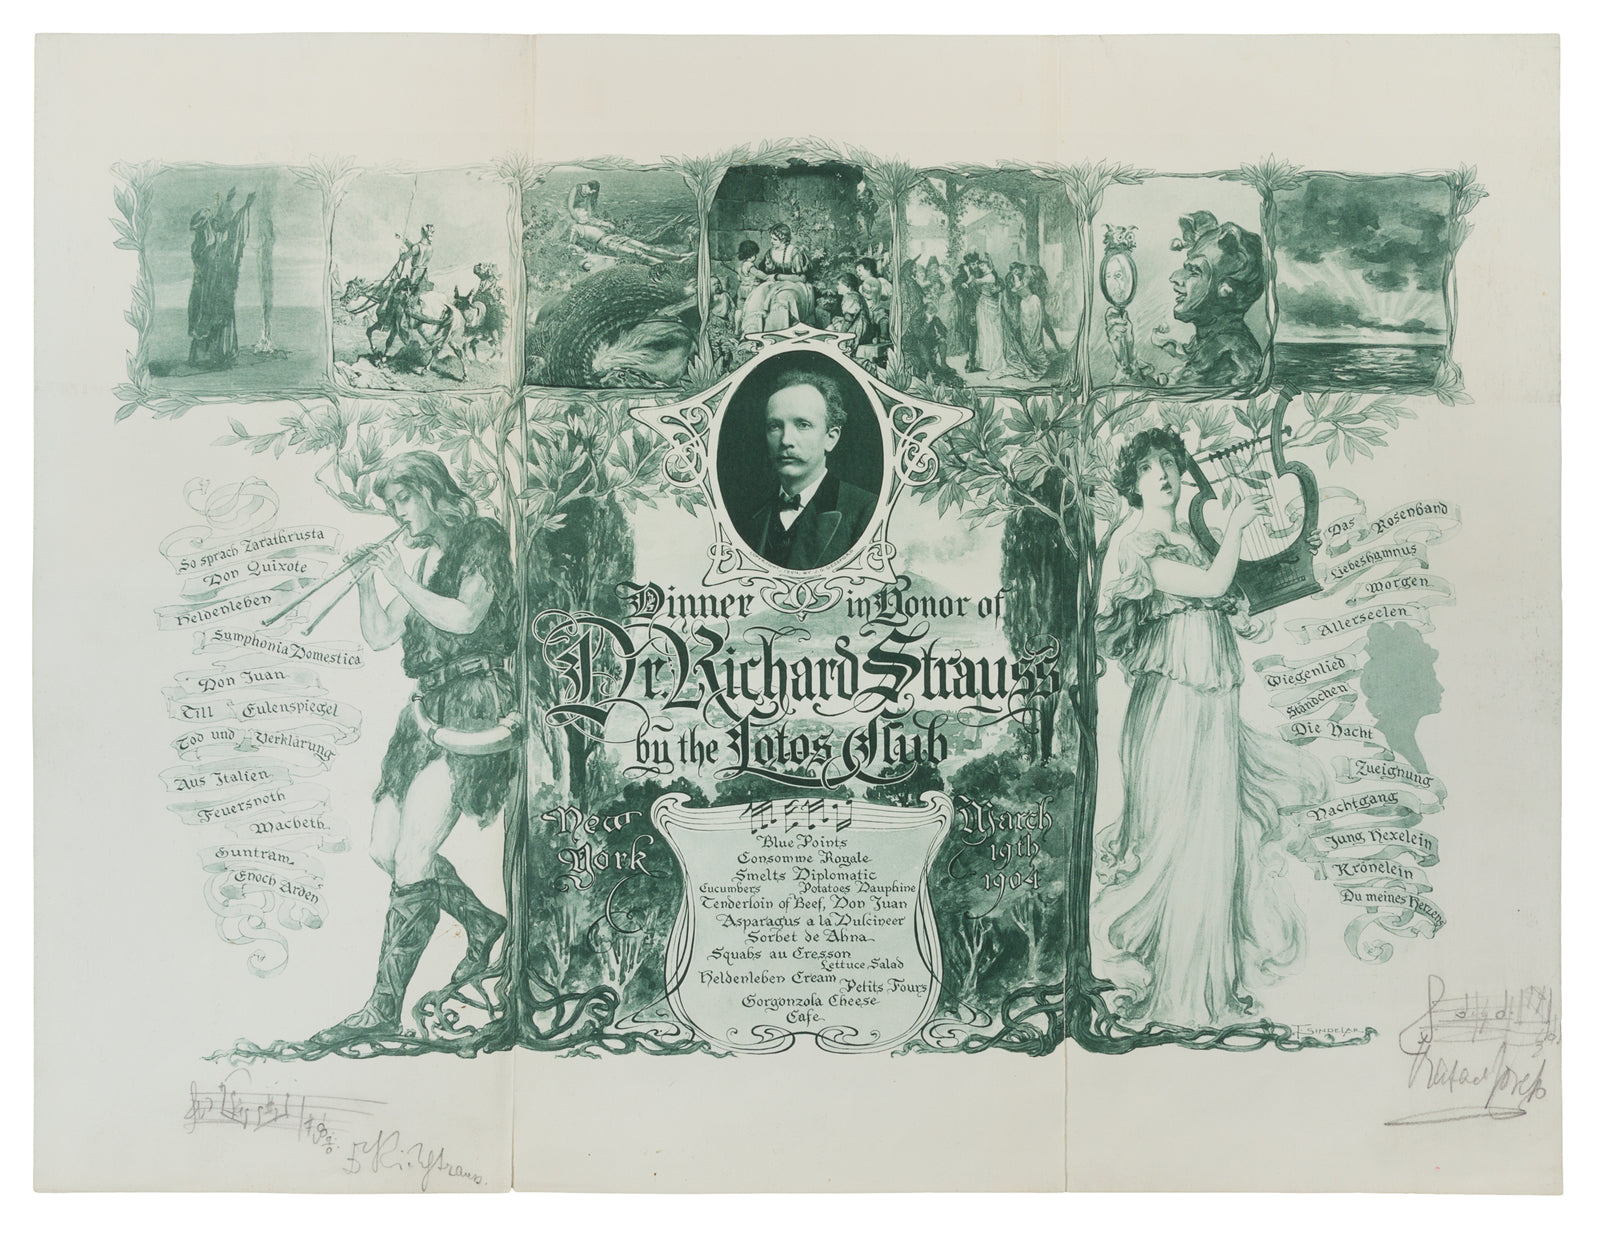 So sprach Zarathrusta
Don Quixote
Heldenleben
Symphonia Domestica
Don Juan
Till Eulenspiegel
Tod und Verklärung
Aus Italien
Feuersnoth
Macbeth
Guntram
Enoch Arden
Dinner in Honor of
Dr. Richard Strauss
by the Lotos Club
New York
March 19th 1904
Blue Points
Consomme Royale
Smelts Diplomatic
Cucumbers Potatoes Dauphine
Tenderloin of Beef, Don Juan
Asparagus a la Dulcineer
Sorbet de Ahna
Squabs au Cresson
Lettuce Salad
Heldenleben Cream
Petits Fours
Gorgonzola Cheese
Cafe
Das Rosenband
Liebeshymnus
Morgen
Allerseelen
Wiegenlied
Ständchen
Die Nacht
Zueignung
Nachtgang
Jung Hexelein
Krönelein
Du meines Herzens
F. SINDELAR
Rafael Joseffy